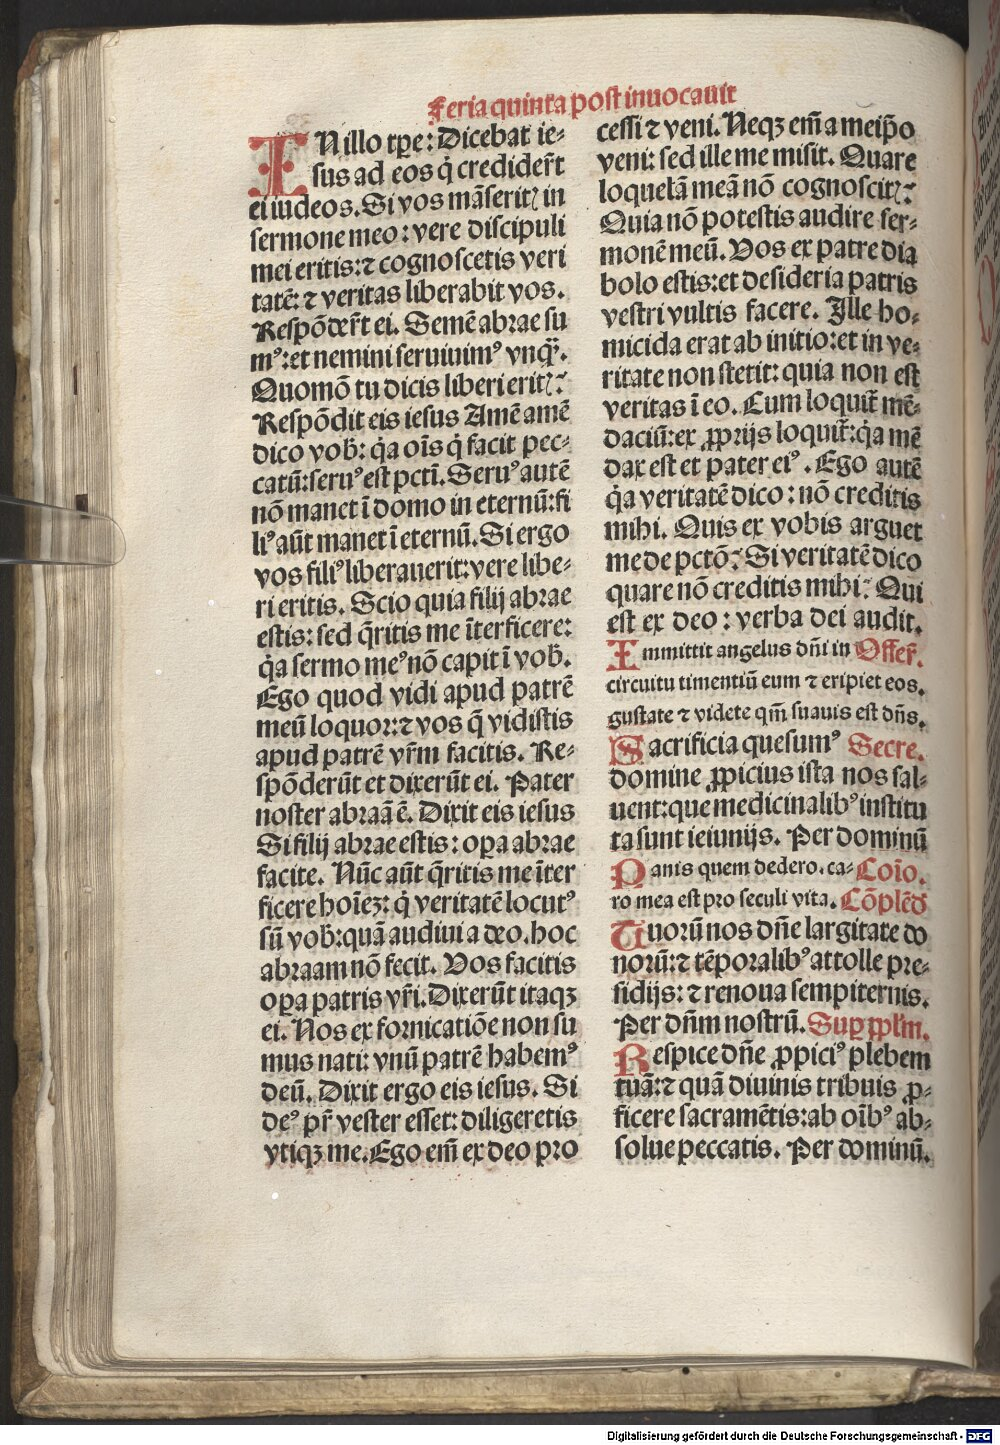 Feria quinta post inuocauit
IN illo tp̄e: Dicebat ie⸗
sus ad eos q̇ credider̄t
ei iudeos. Si vos mãserit) in
sermone meo: vere discipuli
mei eritis: ⁊ cognoscetis veri
tatẽ: ⁊ veritas liberabit vos.
Respõder̄t ei. Semẽ abrae su
mꝰ: et nemini seruiuimꝰ vnq̃.
Quomõ tu dicis liberi erit)?
Respõdit eis iesus Amẽ amẽ
dico vob̄: q̇a oĩs q̇ facit pec⸗
catũ: seruꝰ est pctĩ. Seruꝰ autẽ
nõ manet ĩ domo in eternũ: fi
liꝰ aũt manet ĩ eternũ. Si ergo
vos filiꝰ liberauerit: vere libe⸗
ri eritis. Scio quia filij abrae
estis: sed q̄ritis me ĩterficere:
q̇a sermo meꝰ nõ capit ĩ vob̄.
Ego quod vidi apud patrẽ
meũ loquor: ⁊ vos q̄ vidistis
apud patrẽ vr̄m facitis. Re⸗
spõderũt et dixerũt ei. Pater
noster abraã ẽ. Dixit eis iesus
Si filij abrae estis: oꝑa abrae
facite. Nũc aũt q̄ritis me ĩter
ficere hoĩeꝫ: q̇ veritatẽ locutꝰ
sũ vob̄: quã audiui a deo. hoc
abraam nõ fecit. Vos facitis
oꝑa patris vr̄i. Dixerũt itaqꝫ
ei. Nos ex fornicatiõe non su
mus nati: vnũ patrẽ habemꝰ
deũ. Dixit ergo eis iesus. Si
deꝰ pr̄ vester esset: diligeretis
vtiqꝫ me. Ego em̄ ex deo pro
cessi ⁊ veni. Neqꝫ em̄ a meip̄o
veni: sed ille me misit. Quare
loquelã meã nõ cognoscit)?
Quia nõ potestis audire ser⸗
monẽ meũ. Vos ex patre dia
bolo estis: et desideria patris
vestri vultis facere. Ille ho⸗
micida erat ab initio: et in ve⸗
ritate non stetit: quia non est
veritas ĩ eo. Cum loquit̃ mẽ⸗
daciũ: ex ꝓprijs loquit̃: q̇a mẽ
dax est et pater eiꝰ. Ego autẽ
q̇a veritatẽ dico: nõ creditis
mihi. Quis ex vobis arguet
me de pctõ? Si veritatẽ dico
quare nõ creditis mihi? Qui
est ex deo: verba dei audit.
Immittit angelus dñi in Offer̄.
circuitu timentiũ eum ⁊ eripiet eos.
gustate ⁊ videte qm̄ suauis est dñs.
Sacrificia quesumꝰ Secre.
domine ꝓpicius ista nos sal⸗
uent: que medicinalibꝰ institu
ta sunt ieiunijs. Per dominũ
Panis quem dedero. ca⸗ Coĩo.
ro mea est pro seculi vita. Cõplẽd
Tuorũ nos dñe largitate do
norũ: ⁊ tẽporalibꝰ attolle pre⸗
sidijs: ⁊ renoua sempiternis.
Per dñm nostrũ. Suꝑ ppl̄m.
Respice dñe ꝓpiciꝰ plebem
tuã: ⁊ quã diuinis tribuis ꝓ⸗
ficere sacramẽtis: ab oĩbꝰ ab⸗
solue peccatis. Per dominũ.
Digitalisierung gefördert durch die Deutsche Forschungsgemeinschaft - DFG